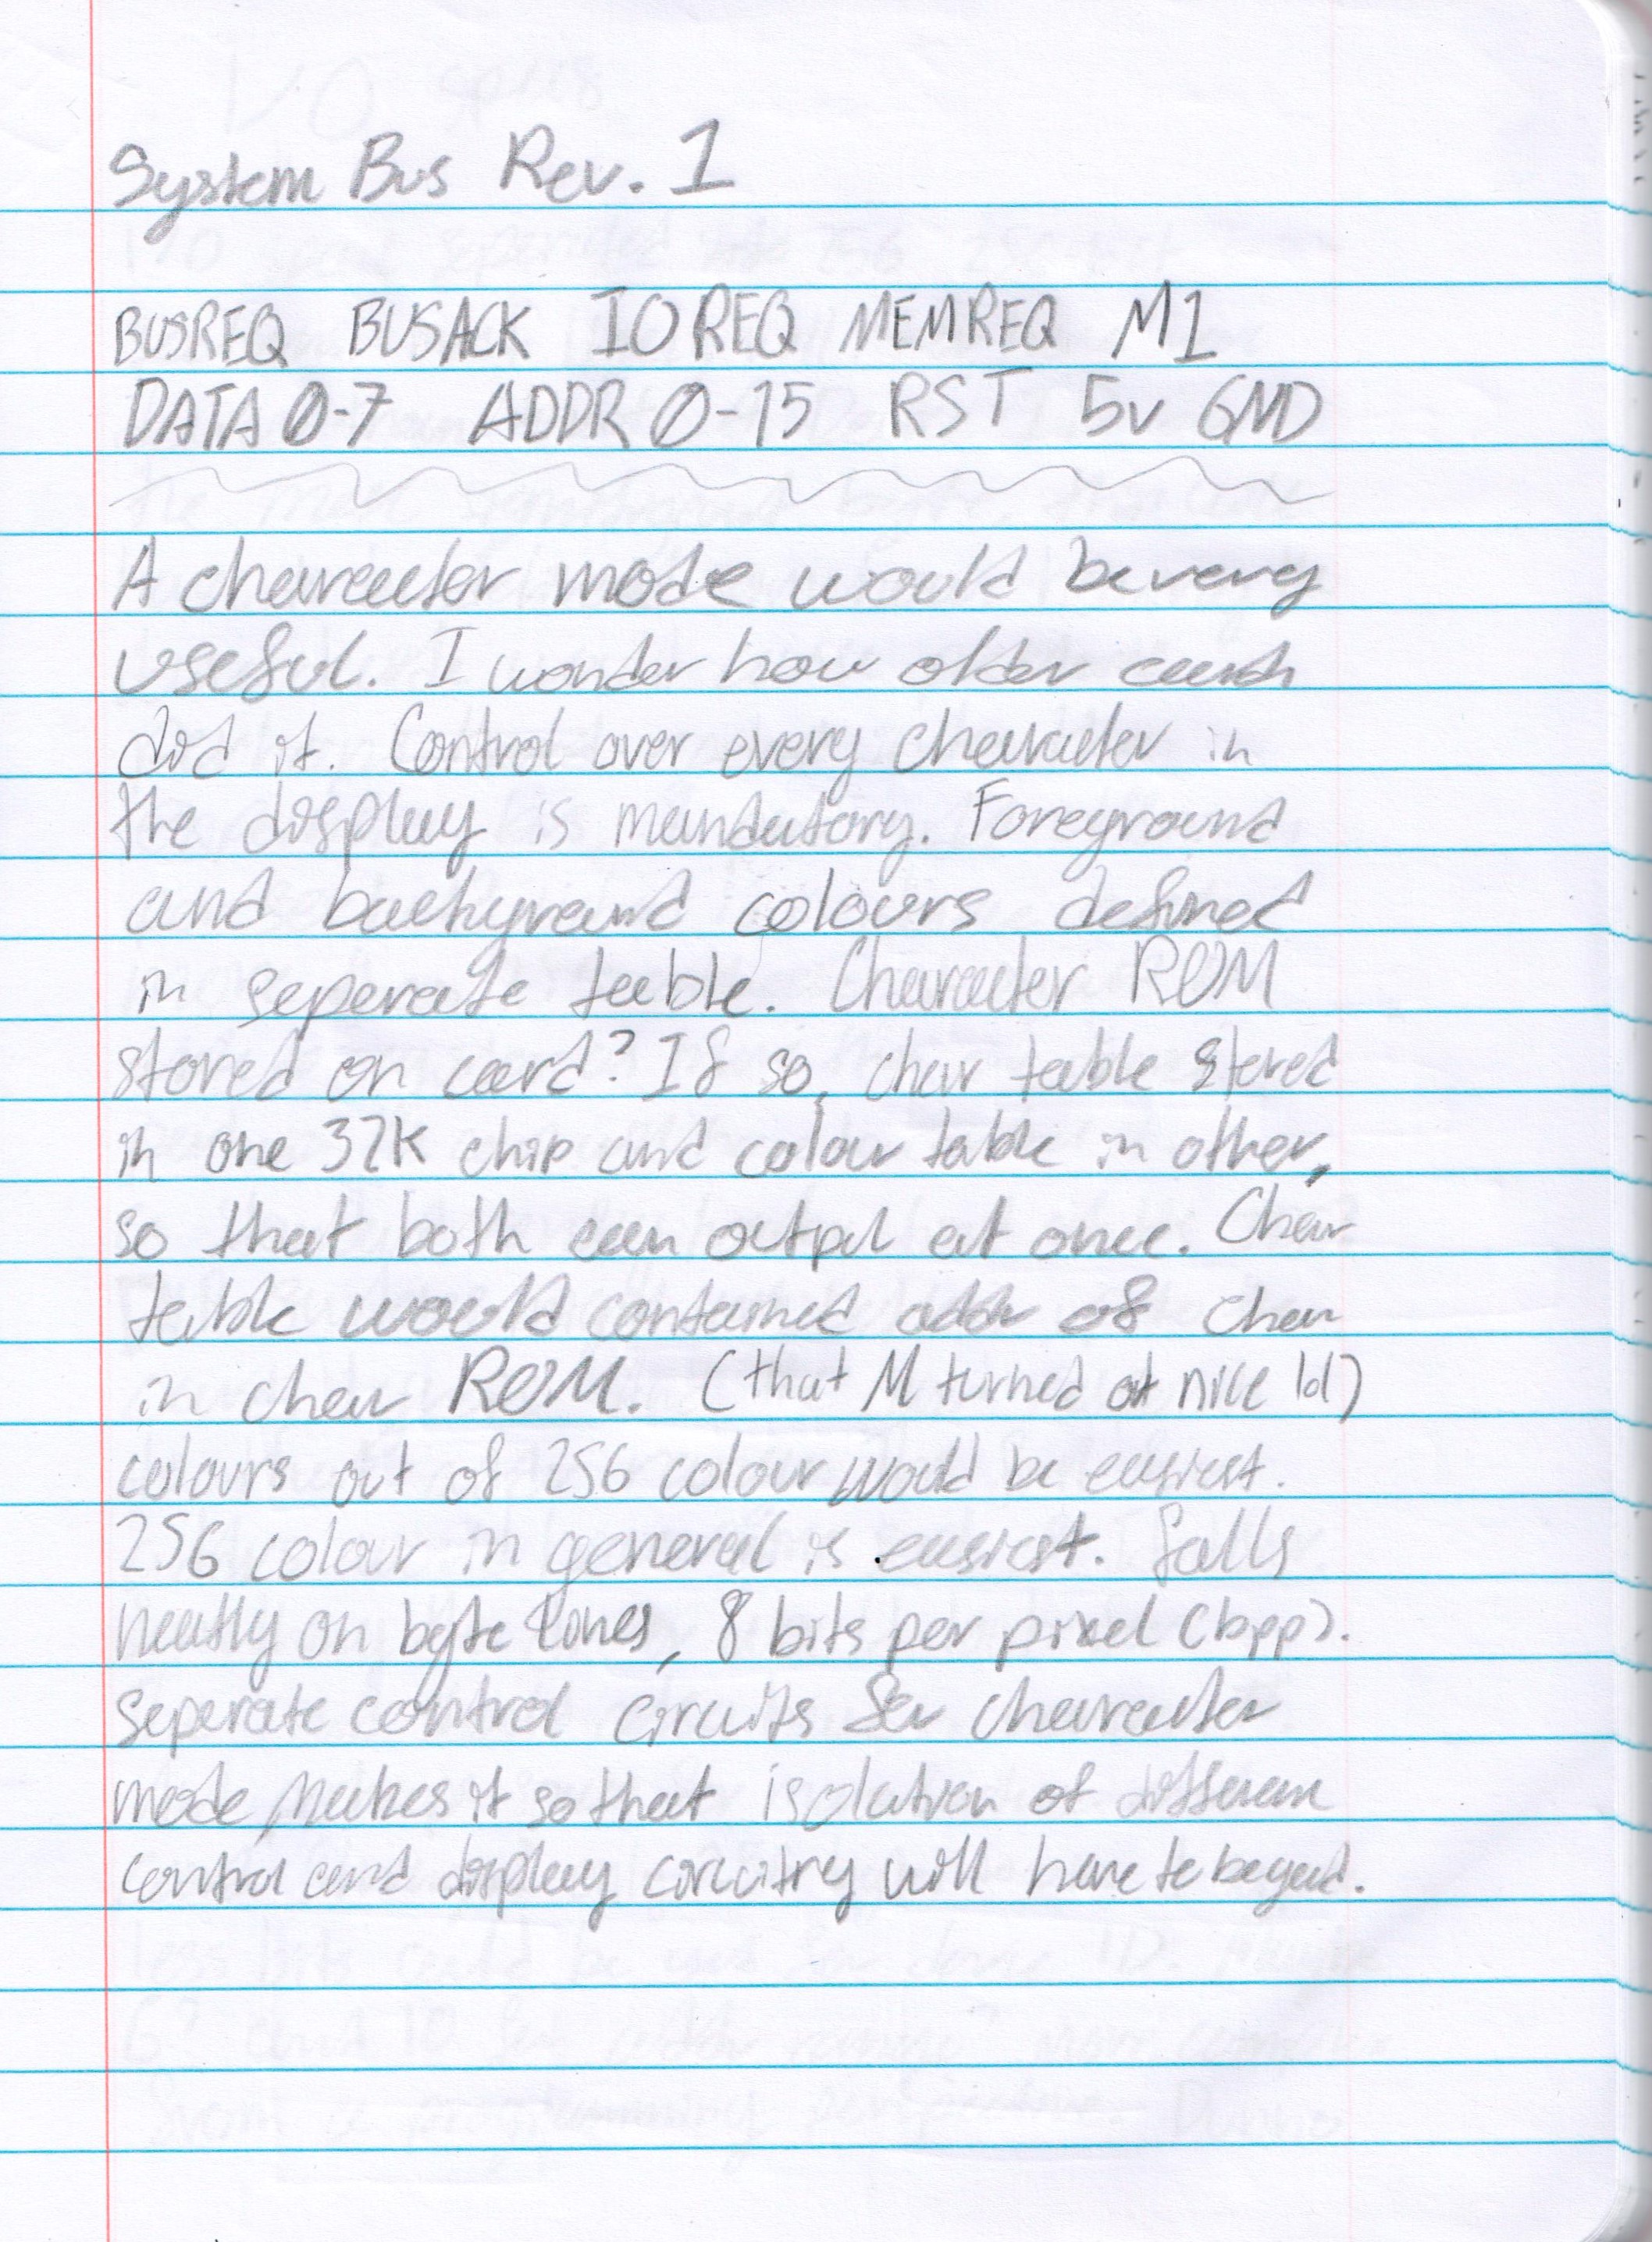 System Bus Rev. 1
BUSREQ BUSACK IOREQ MEMREQ M1
DATA 0-7 ADDR 0-15 RST 5v GND
A character mode would be very
useful. I wonder how older cards
did it. Control over every character in
the display is mandatory. Foreground
and background colours defined
in seperate table. Character ROM
stored on card? If so, char table stored
in one 32K chip and colour table in other,
so that both can output at once. Char
table would contained addr of char
in char ROM. (that M turned out nice lol)
colours out of 256 colour would be easiest.
256 colour in general is easiest. falls
neatly on byte lines, 8 bits per pixel (bpp).
seperate control circuits for character
mode makes it so that isolation of different
control and display circuitry will have to be